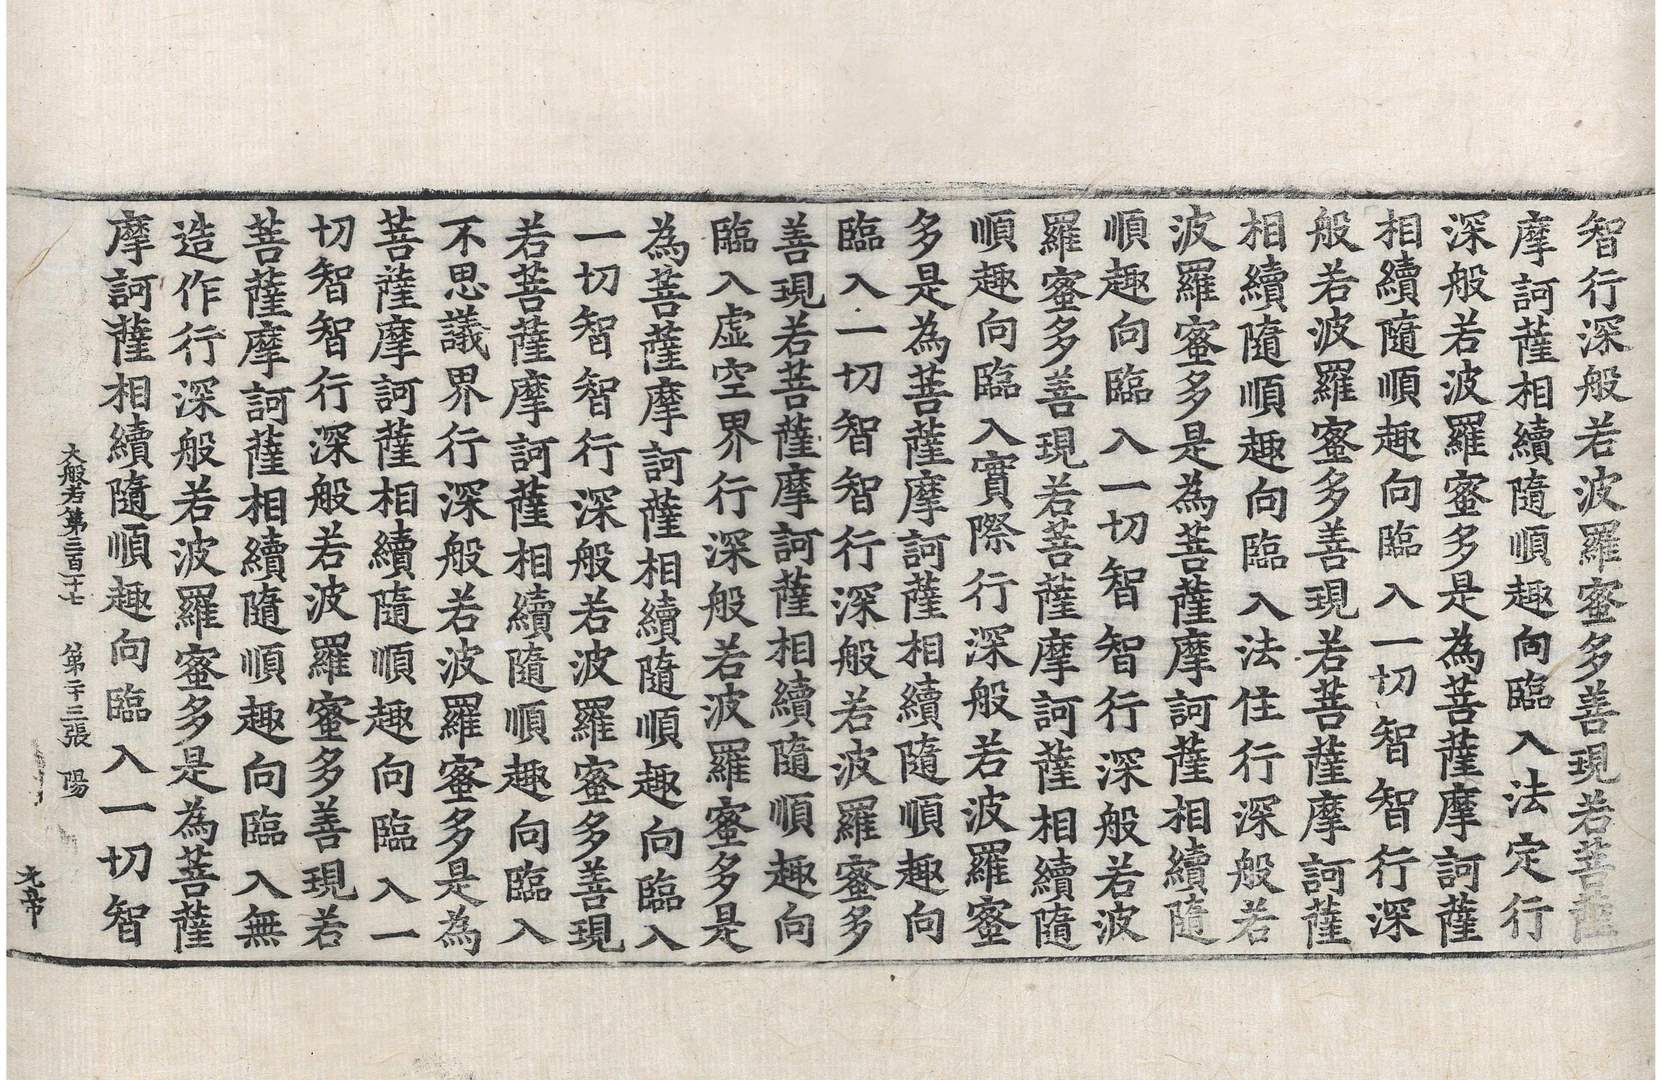 智行深般若波羅蜜多善現若菩薩
摩訶薩相續隨順趣向臨入法定行
深般若波羅蜜多是為菩薩摩訶薩
相續隨順趣向臨入一切智智行深
般若波羅蜜多善現若菩薩摩訶薩
相續隨順趣向臨入法住行深般若
波羅蜜多是為菩薩摩訶薩相續隨
順趣向臨入一切智智行深般若波
羅蜜多善現若菩薩摩訶薩相續隨
順趣向臨入實際行深般若波羅蜜
多是為菩薩摩訶薩相續隨順趣向
臨入一切智智行深般若波羅蜜多
善現若菩薩摩訶薩相續隨順趣向
臨入虛空界行深般若波羅蜜多是
為菩薩摩訶薩相續隨順趣向臨入
一切智智行深般若波羅蜜多善現
若菩薩摩訶薩相續隨順趣向臨入
不思議界行深般若波羅蜜多是為
菩薩摩訶薩相續隨順趣向臨入一
切智智行深般若波羅蜜多善現若
菩薩摩訶薩相續隨順趣向臨入無
造作行深般若波羅蜜多是為菩薩
摩訶薩相續隨順趣向臨入一切智
大般若第三百二十七 第二十三張 陽